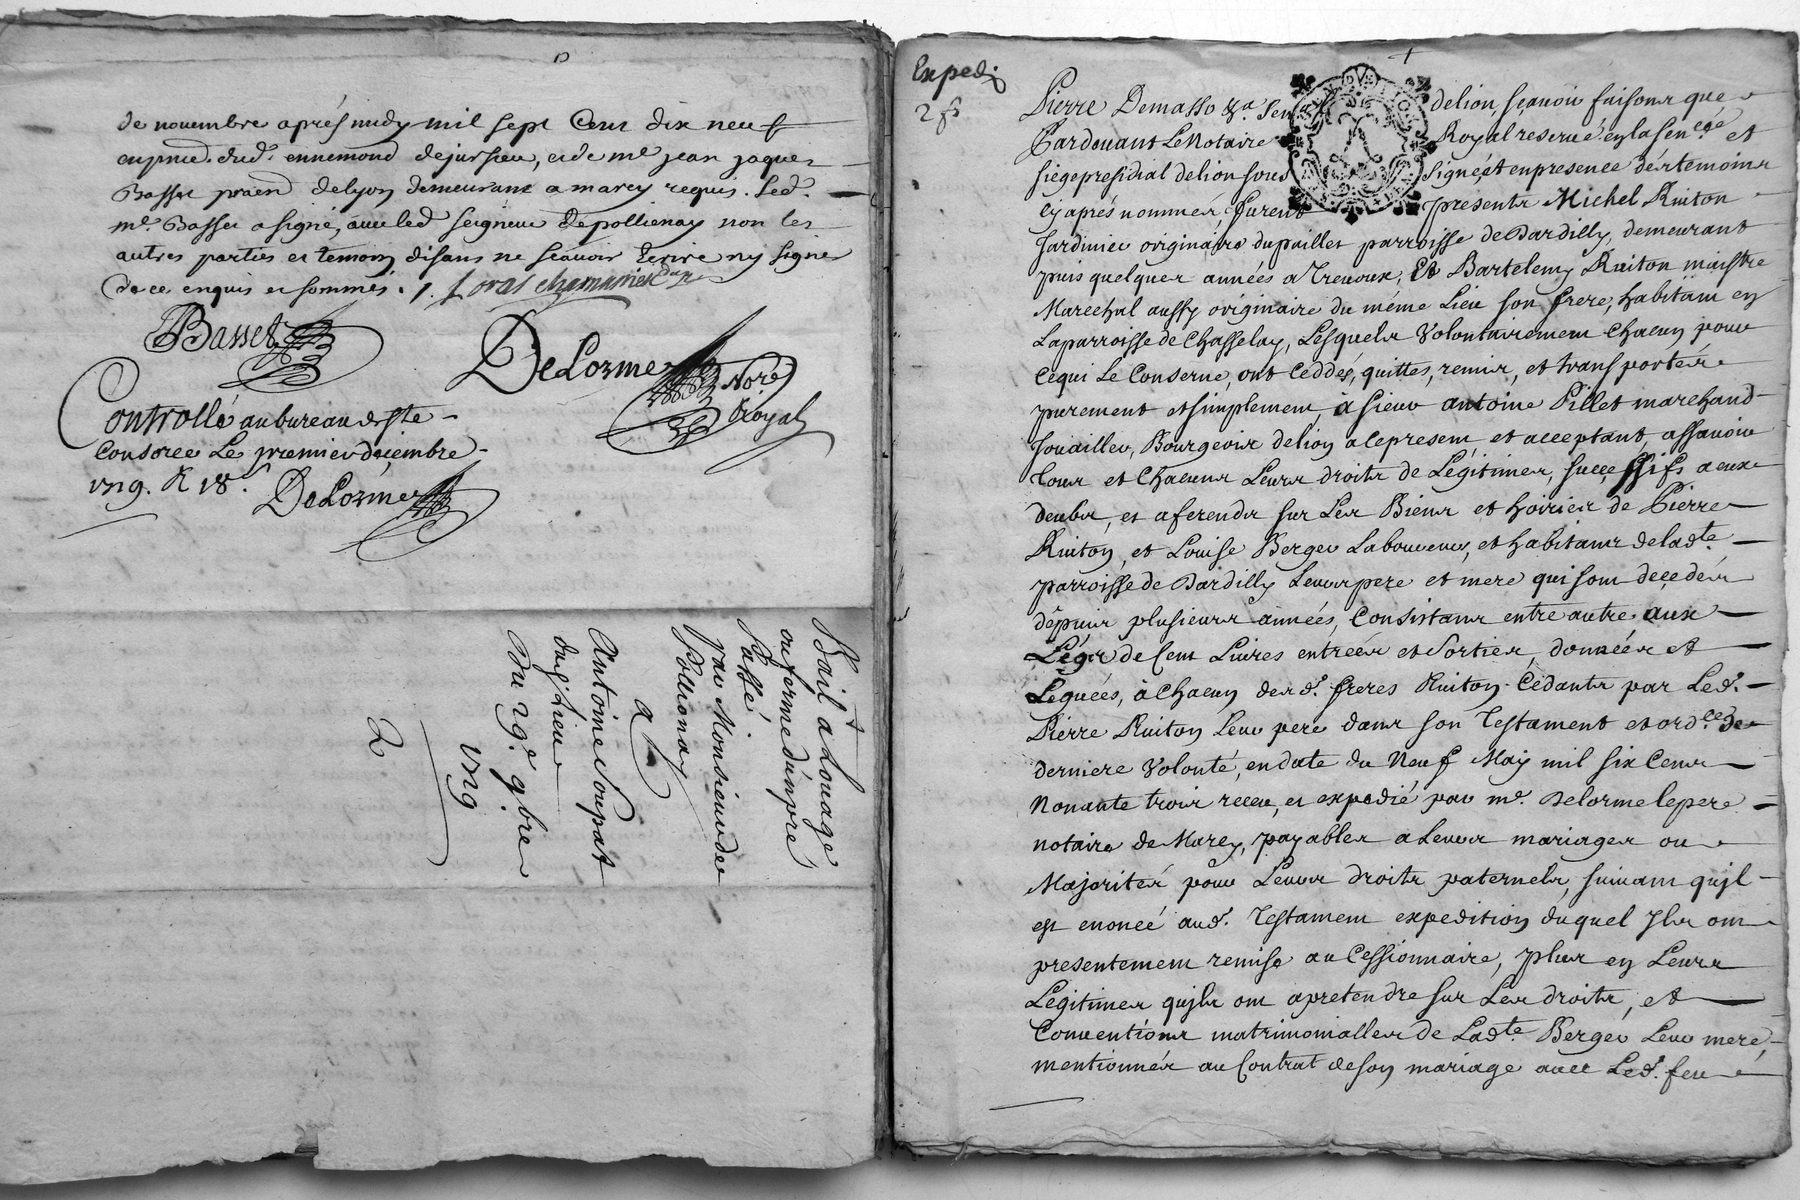 de novembre aprés midy mil sept Cens dix neuf
ennemond dejussieu, et de me jean jaques
Basset delyon demeurant a marcy requis. Led.
me. Basset a signé, avec led seigneur depollienay non les
autres parties et temoins disans ne scavoir Ecrire ny signer
de ce enquis et sommés.
Basset
DeLorme Nore Royal
Controllé au bureau de ste
Consorce Le premier decembre
1719. R 18s.
DeLorme
Bail a Louage
ou ferme d'un pré
Passé
par Monsieur de
Pollionay
a
Antoine Soupat
dud. Lieu
Du 29e 9bre
1719
2
Expedi
2 fs
Pierre Demasso &a. Sen delion, sçavoir faisons que
Pardevant Le Notaire Royal reservé en la sencée et
siege presidial de lion sous signé, et en presence des temoins
cy aprés nommés, furent presents Michel Ruiton
Jardinier originaire du paillet parroisse de Dardilly, demeurant
puis quelques années a Trevoux, Et Bartelemy Ruiton maistre
Marechal aussy originaire du méme Lieu son frere, habitant en
La parroisse de Chasselay, Lesquels Volontairement Chacun pour
ce qui Le Conserne, ont Ceddés, quittes, remis, et transportés
purement et simplement, à sieur antoine Pillet marchand
Jouaillier, Bourgeois de lion a ce present et acceptant, assavoir
tous et Chacuns Leurs droits de Légitimes, successifs a eux
deubs, et aferends sur Les Biens et hoiries de Pierre
Ruiton, et Louise Berger Laboureurs, et habitans de ladte.
parroisse de Dardilly Leurs pere et mere qui sont decedés
dépuis plusieurs années, Consistans entre autre aux
Légs de Cent Livres entrées et Sorties, données et
Leguées, à Chacun desd. freres Ruiton Cédants par Led.
Pierre Ruiton Leur pere dans son Testament et ordce de
derniere Volonté, en date du Neuf May mil six Cens
Nonante trois receu, et expedié par me. Delorme le pere
notaire de Marcy, payables a Leurs mariages ou
Majorités pour Leurs droits paternels, suivant qu'jl
est enoncé aud. Testament expedition duquel Jls ont
presentement remise au Cessionnaire, plus en Leurs
Légitimes qu'jls ont a pretendre sur Les droits, et
Conventions matrimonialles de Ladte. Berger Leur mere,
mentionnés au Contrat de son mariage avec Led. feu